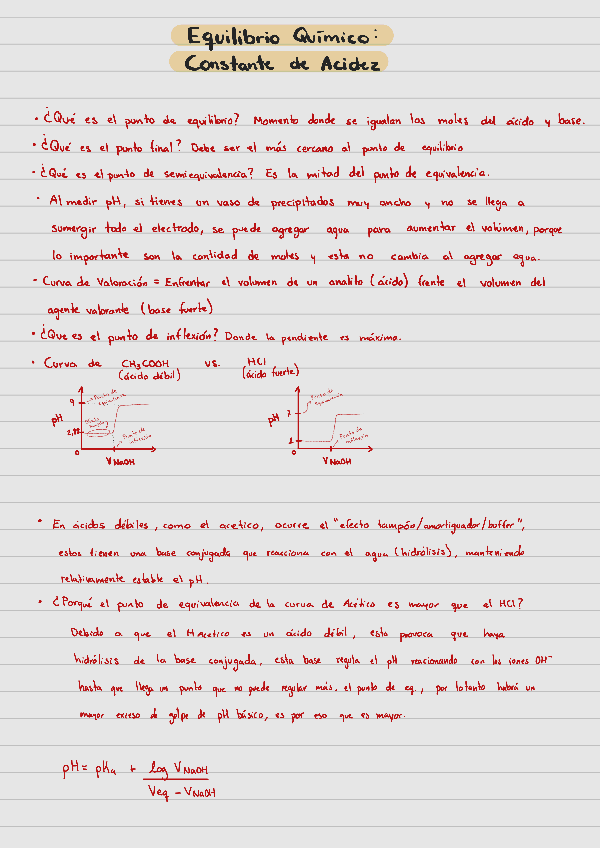 Equilibrio Químico:
Constante de Acidez
• ¿Qué es el punto de equilibrio? Momento donde se igualan los moles del ácido y base.
• ¿Qué es el punto final? Debe ser el más cercano al punto de equilibrio
• ¿Qué es el punto de semiequivalencia? Es la mitad del punto de equivalencia.
• Al medir pH, si tienes un vaso de precipitados muy ancho y no se llega a
sumergir todo el electrodo, se puede agregar agua para aumentar el volúmen, porque
lo importante son la cantidad de moles y esta no cambia al agregar agua.
• Curva de Valoración = Enfrentar el volumen de un analito (ácido) frente el volumen del
agente valorante (base fuerte)
• ¿Que es el punto de inflexión? Donde la pendiente es máxima.
• Curva de CH₃COOH vs. HCl
(ácido débil) (ácido fuerte)
9 Punto de equivalencia
pH
2,88
Punto de
0
V NaOH
Punto de equivalencia
pH 7
1
Punto de
0
V NaOH
• En ácidos débiles, como el acetico, ocurre el "efecto tampón/amortiguador/buffer",
estos tienen una base conjugada que reacciona con el agua (hidrólisis), manteniendo
relativamente estable el pH.
• ¿Porqué el punto de equivalencia de la curva de Acético es mayor que el HCl?
Debido a que el H Acetico es un ácido débil, esto provoca que haya
hidrólisis de la base conjugada, esta base regula el pH reaccionando con los iones OH⁻
hasta que llega un punto que no puede regular más, el punto de eq., por lo tanto habrá un
mayor exceso de golpe de pH básico, es por eso que es mayor.
pH = pKa + log V NaOH
Veq - V NaOH